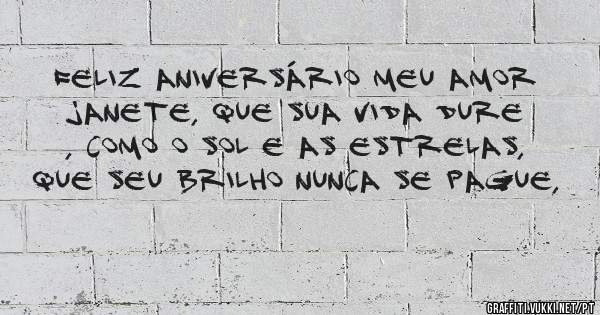 FELIZ ANIVERSÁRIO MEU AMOR
JANETE, QUE SUA VIDA DURE
, COMO O SOL E AS ESTRELAS,
QUE SEU BRILHO NUNCA SE PAGUE,
GRAFFITI.VUKKI.NET/PT